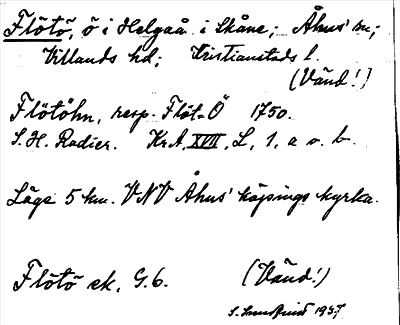 Flötö, ö i Helgeå i Skåne; Åhus' sn;
Villands hd; Kristianstads l.
(Vänd!)
Flötöhn, resp. Flöt-Ö 1750.
S. H. Radier. KrA, XVII, L, 1, a o. b.
Läge 5 km. VNV Åhus' köpings kyrka.
Flötö ek, G.b. (Vänd!)
1937